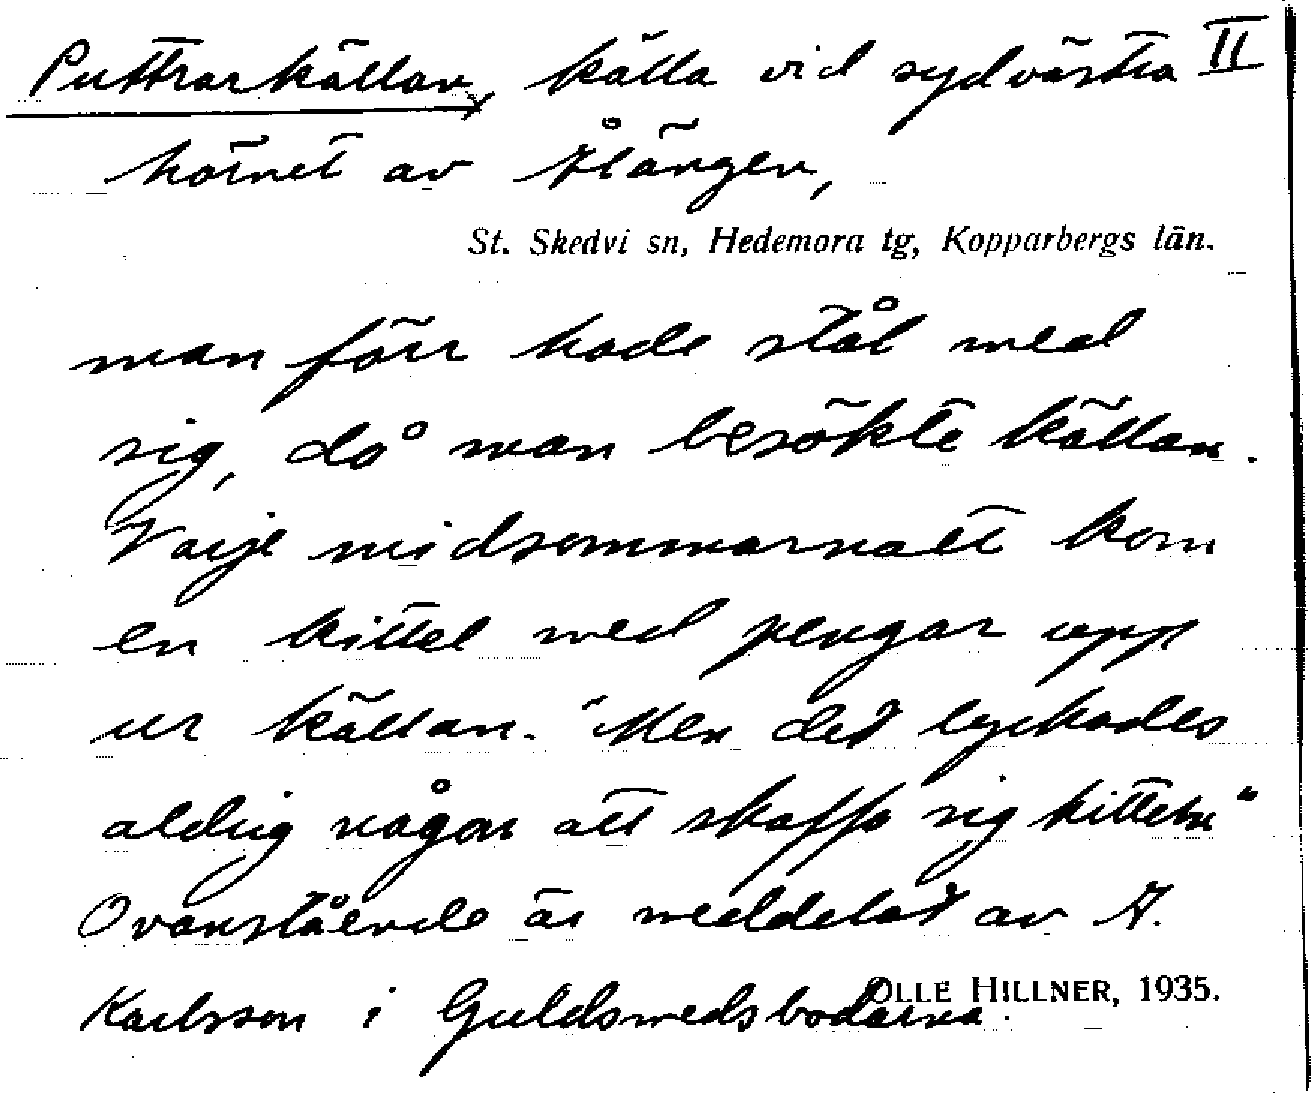 Puttrarkällan, källa vid sydvästra II
hörnet av Ålängen,
St. Skedvi sn, Hedemora tg, Kopparbergs län.
man förr hade stål med
sig, då man besökte källan.
Varje midsommarnatt kom
en kittel med pengar upp
ur källan. "Men det lyckades
aldrig någon att skaffa sig kitteln"
Ovanstående är meddelat av A.
Karlsson i Guldsmedsbodarna.
OLLE HILLNER, 1935.